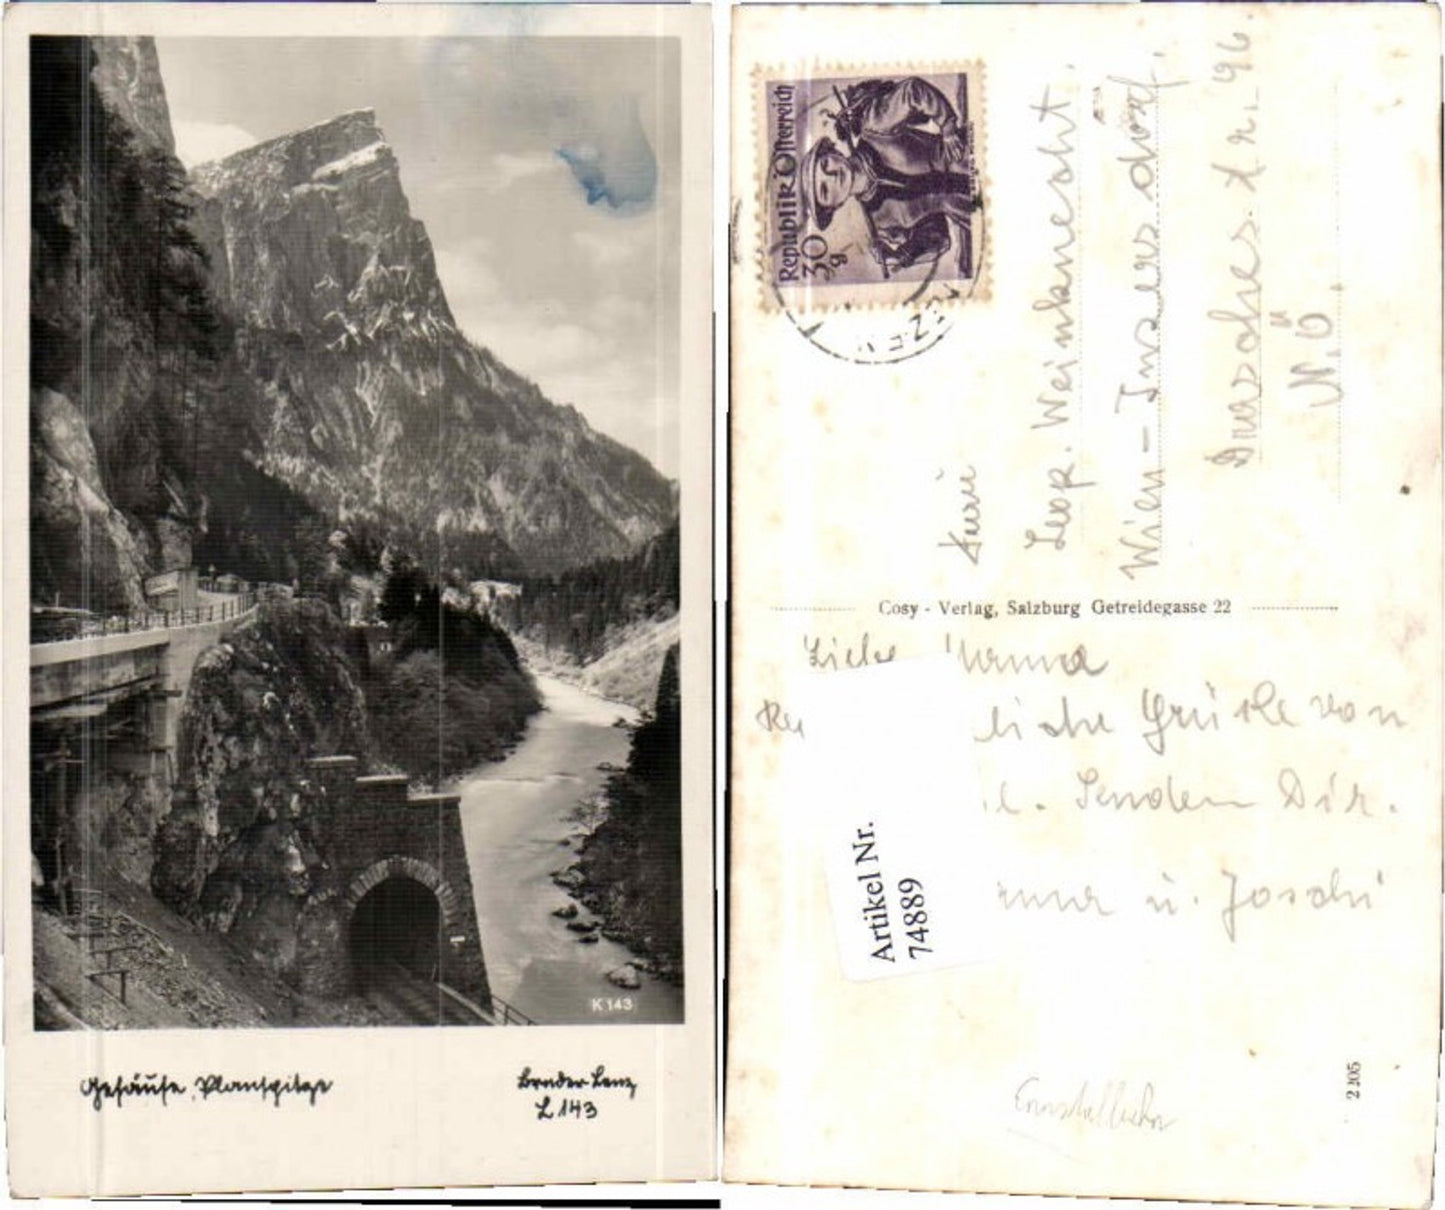 K 143
Gesäuse, Planspitze
Bruder Lenz
L 143
Republik Österreich
30 g
Leop. Weinknecht.
Wien – Inzersdorf.
Nr. 96
N.Ö.
Cosy - Verlag, Salzburg Getreidegasse 22
Liebe
Grüsse von
Senden Dir.
u. Joschi
Artikel Nr.
74889
Ennstalbahn
2105